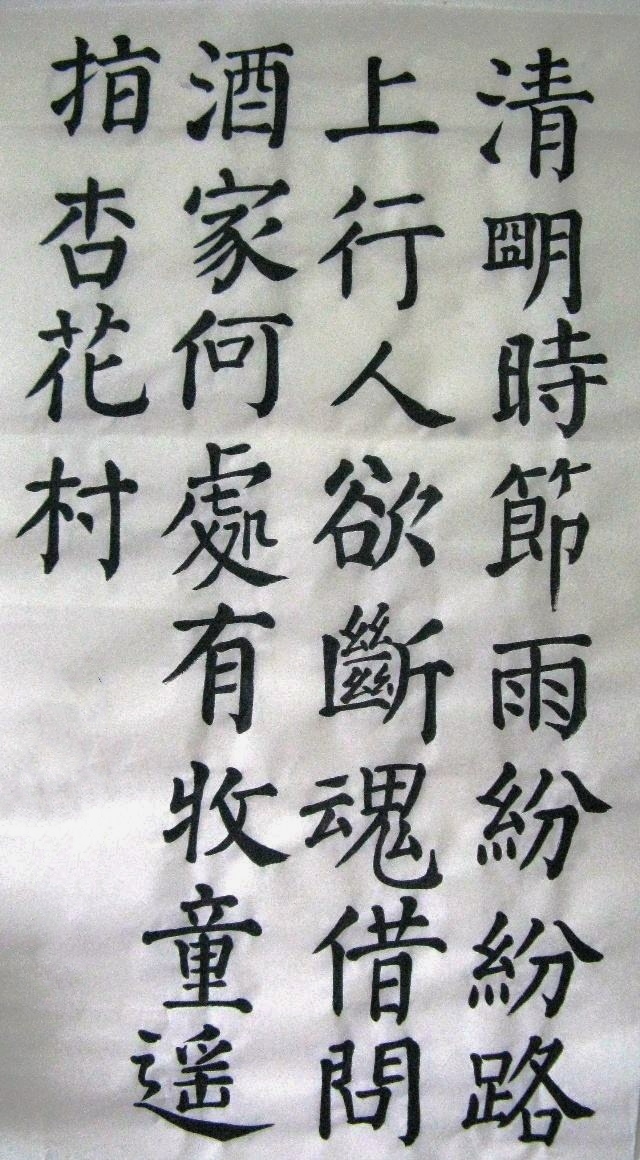 清朙時節雨紛紛路
上行人欲斷魂借問
酒家何處有牧童遥
指杏花村